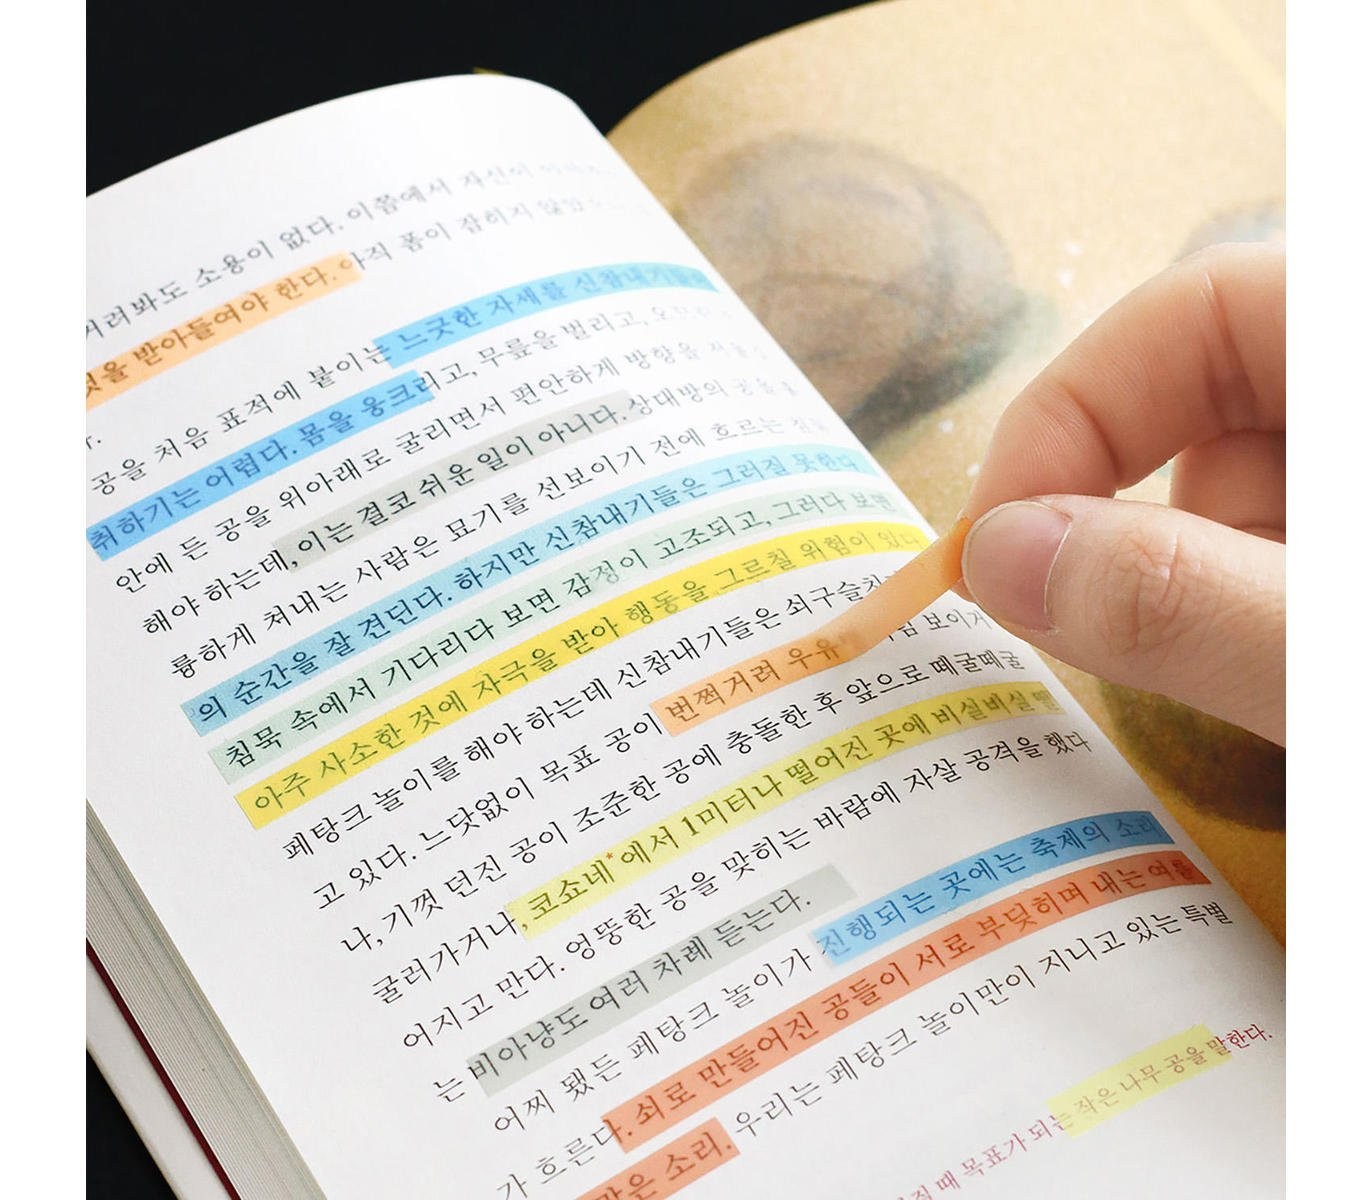 거려봐도 소용이 없다. 이쯤에서 자신이
것을 받아들여야 한다. 아직 폼이 잡히지 않았
다.
공을 처음 표적에 붙이는 느긋한 자세를 신참내기들이
취하기는 어렵다. 몸을 웅크리고, 무릎을 벌리고,
안에 든 공을 위아래로 굴리면서 편안하게 방향을
해야 하는데, 이는 결코 쉬운 일이 아니다. 상대방의 공을
륭하게 쳐내는 사람은 묘기를 선보이기 전에 흐르는 침묵
의 순간을 잘 견딘다. 하지만 신참내기들은 그러질 못한다
침묵 속에서 기다리다 보면 감정이 고조되고, 그러다 보면
아주 사소한 것에 자극을 받아 행동을 그르칠 위험이 있다
페탕크 놀이를 해야 하는데 신참내기들은 쇠구슬치기
고 있다. 느닷없이 목표 공이 번쩍거려 우유 보이거
나, 기껏 던진 공이 조준한 공에 충돌한 후 앞으로 떼굴떼굴
굴러가거나, 코쇼네*에서 1미터나 떨어진 곳에 비실비실 떨
어지고 만다. 엉뚱한 공을 맞히는 바람에 자살 공격을 했다
는 비아냥도 여러 차례 듣는다.
어찌 됐든 페탕크 놀이가 진행되는 곳에는 축제의 소리
가 흐른다. 쇠로 만들어진 공들이 서로 부딪히며 내는 여름
같은 소리. 우리는 페탕크 놀이만이 지니고 있는 특별
때 목표가 되는 작은 나무 공을 말한다.